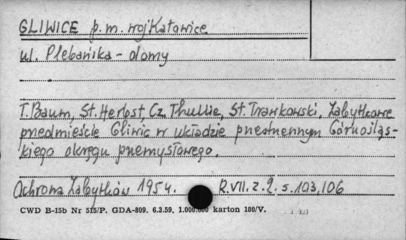 GLIWICE p.m. woj Katowice
ul. Plebańska - domy
T. Baum, St. Herbst, Cz. Thullie, St. Trawkowski, Zabytkowe
przedmieście Gliwic w układzie przestrzennym Górnoślą-
skiego okręgu przemysłowego.
Ochrona Zabytków 1954. R. VII. z. 2. s. 103, 106
CWD B-15b Nr 515/P. GDA-809. 6.3.59. 1.000.000 karton 180/V.